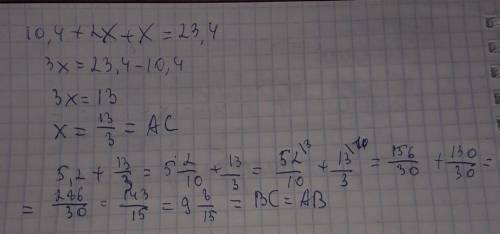 10,4 + 2x + x = 23,4
3x = 23,4 - 10,4
3x = 13
x = 13/3 = AC
5,2 + 13/3 = 5 2/10 + 13/3 = 52\3/10 + 13\10/3 = 156/30 + 130/30 =
= 286/30 = 143/15 = 9 8/15 = BC = AB